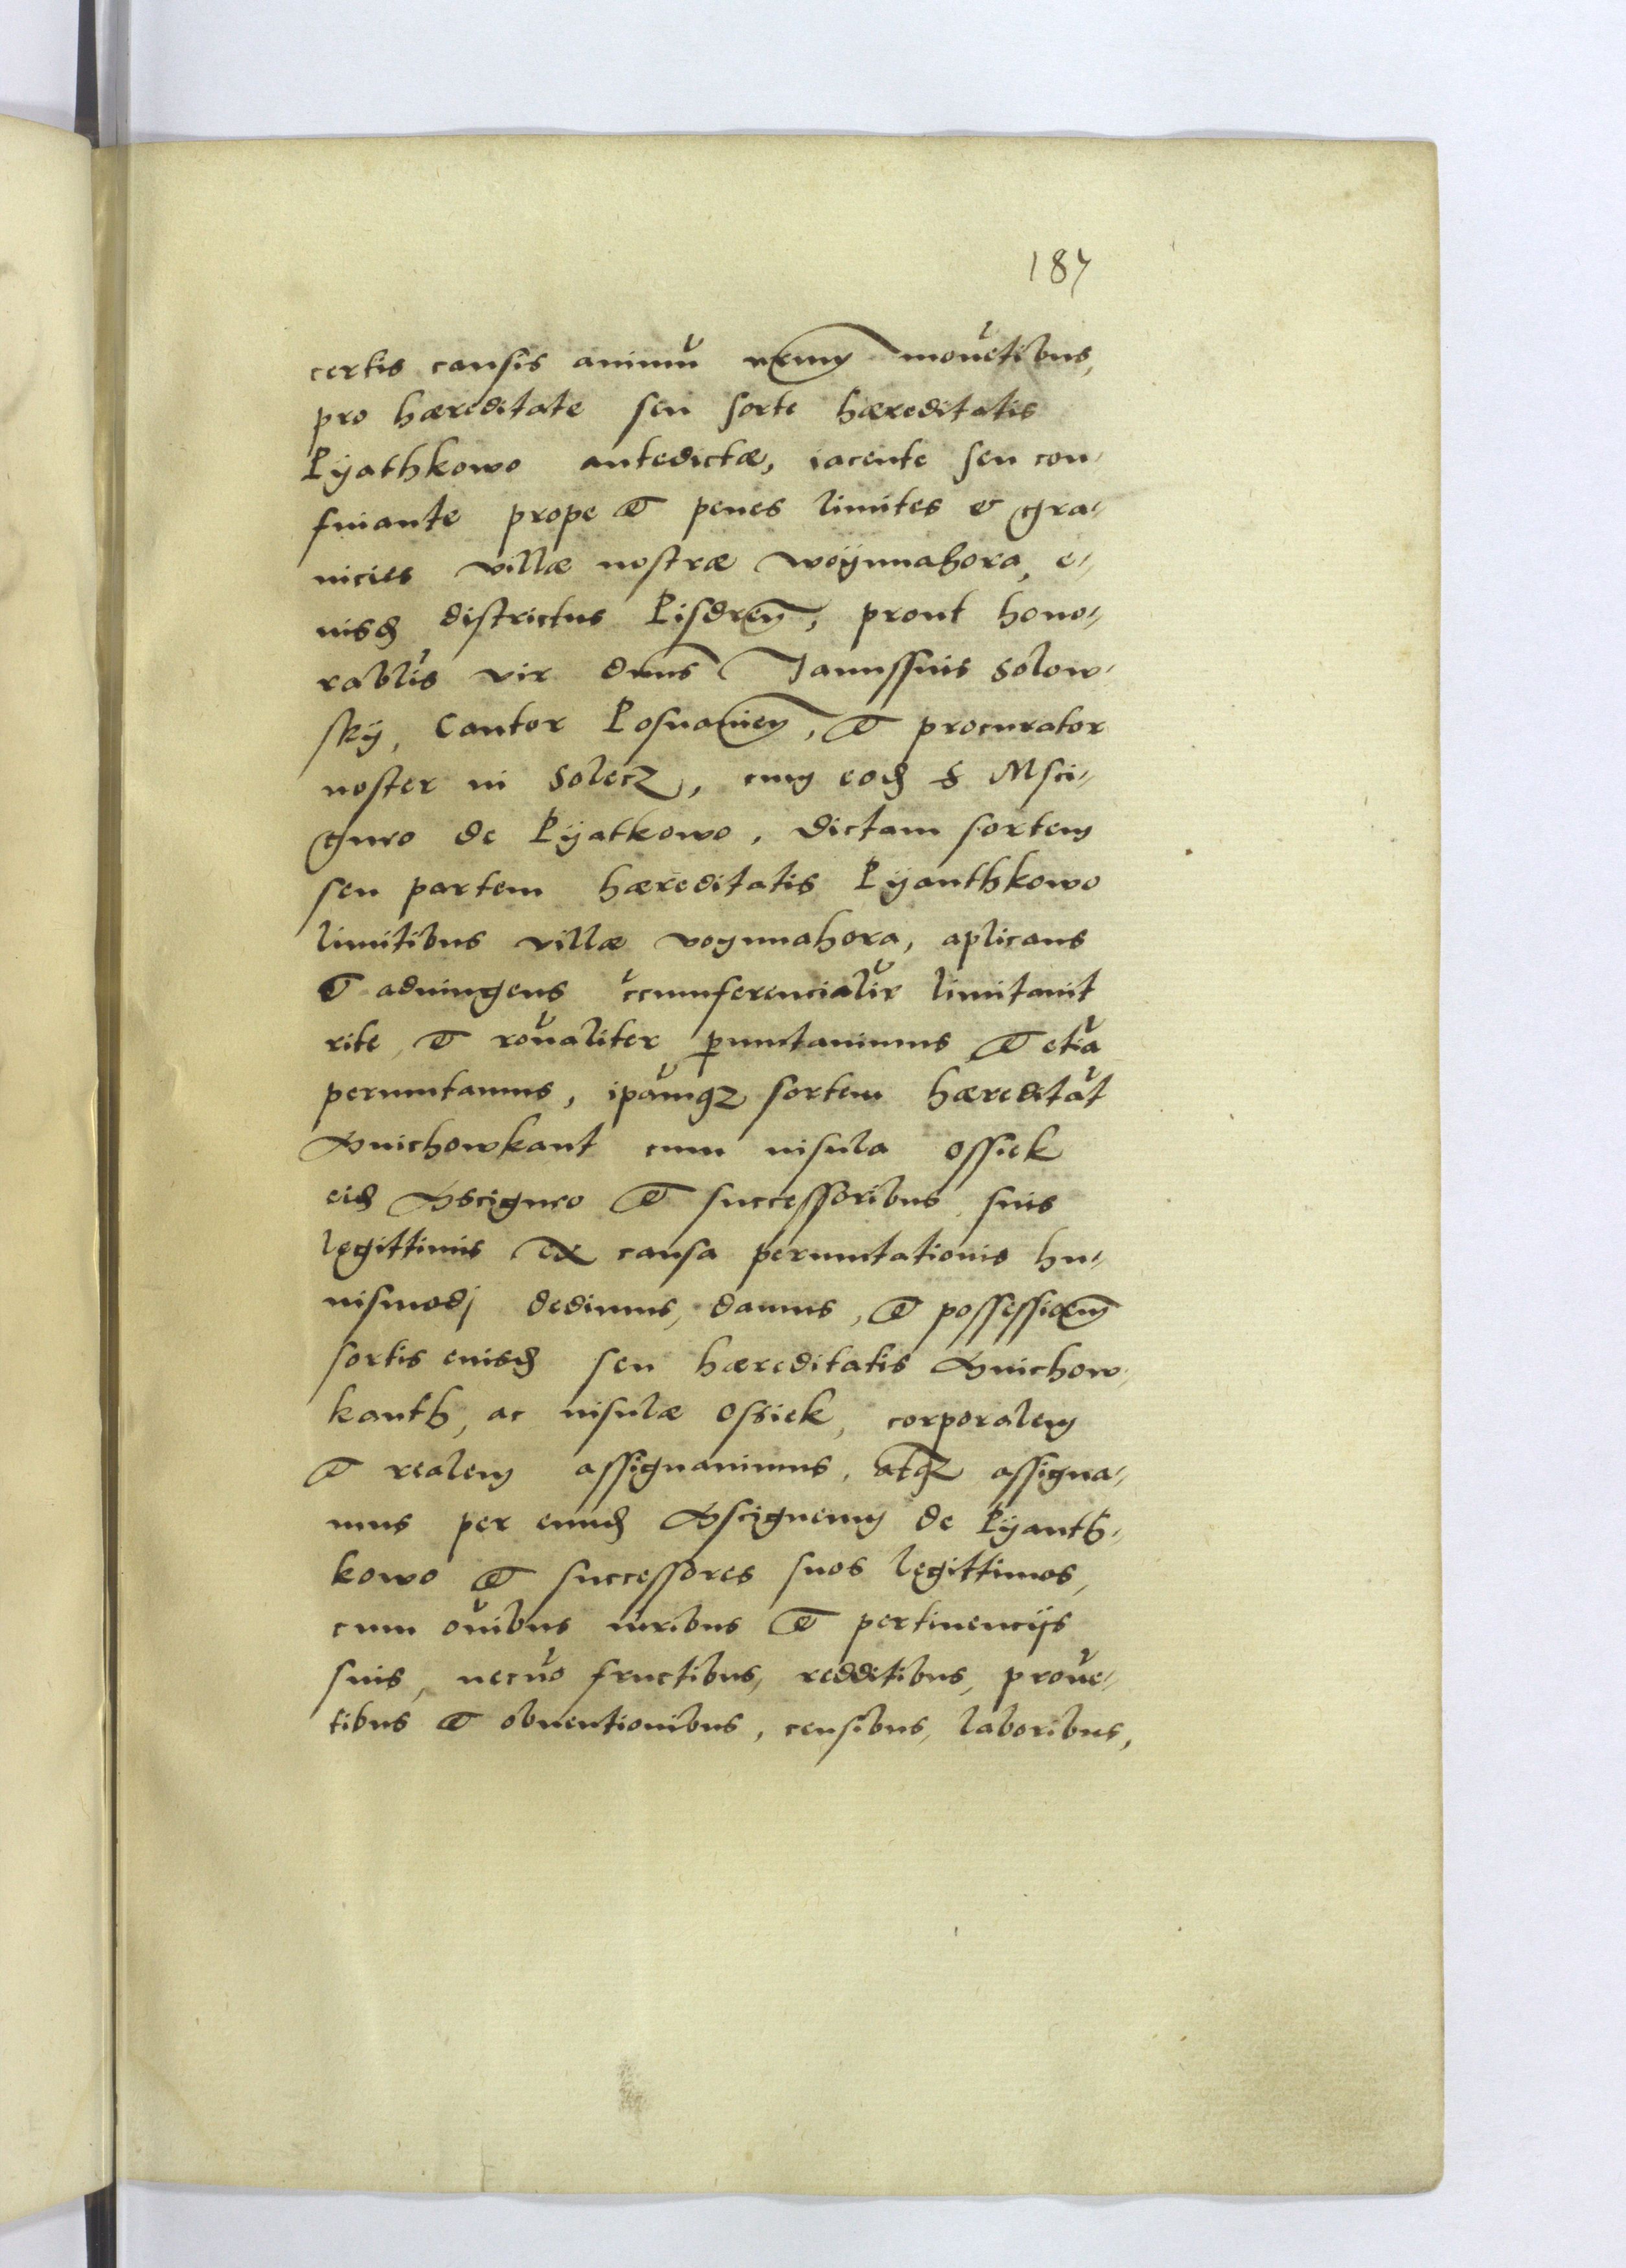 187
certis causis animū nr̄um mouētibus,
pro hæreditate seu sorte hæreditatis
Pÿathkowo antedictæ, iacente seu con„
finante prope et penes limites & gra„
nicies villæ nostræ Woÿnnahora, e„
iusd districtus Pisdren̄, prout hono„
rablis vir dnus Janussius Solow„
skÿ, Cantor Posnanien̄, et procurator
noster in Solecz, cum eod S Msci„
guro de Pÿatkowo, dictam sortem
seu partem hæreditatis Pÿanthkowo
limitibus villæ voynnahora, aplicans
et adiungens c̄cumferencialir limitauit
rite et rōnaliter ꝑmutauimus et etiā
permutamus, ipāmqꝫ sortem hæreditāt
Gnichowkant cum insula Ossiek
eid Mscigneo et successoribus suis
legittimis ex causa permutationis hu„
iusmodj dedimus, damus, et possessioem̄
sortis eiusd seu hæreditatis Gnichow„
kanth, ac insulæ Ossiek, corporalem
et realem assignauimus, atqꝫ assigna„
mus per eund Mscignemm de Pÿanth„
kowo et successores suos legittimos,
cum oīnibus iuribus et pertinencijs
suis, necnō fructibus, redditibus, prouē„
tibus et obuentionibus, censibus, laboribus,